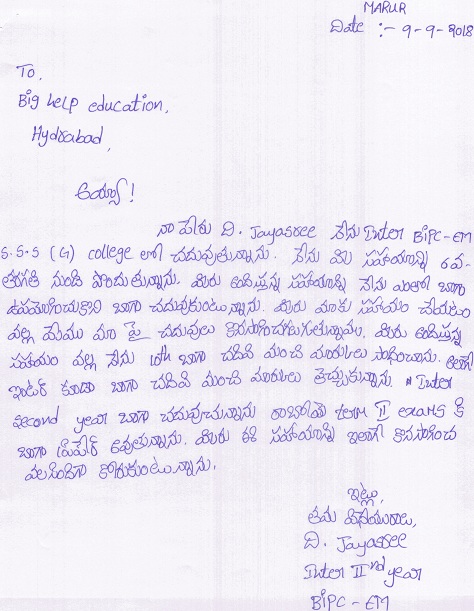 MARUR
Date :- 9-9-2018
To,
Big help education,
Hyderabad,
అయ్యా!
నా పేరు D. Jayasree నేను Inter BiPC-EM
S.S.S (G) college లో చదువుతున్నాను. నేను మీ సహాయాన్ని 6వ-
తరగతి నుండి పొందుతున్నాను. మీరు అందిస్తున్న సహాయాన్ని నేను ఎంతో బాగా
ఉపయోగించుకుని బాగా చదువుకుంటున్నాను. మీరు మాకు సహాయం చేయటం
వల్ల మేము మా పై చదువులు కొనసాగించగలుగుతున్నాము. మీరు అందిస్తున్న
సహాయం వల్ల నేను 10th బాగా చదివి మంచి మార్కులు సాధించాను. అలాగే
ఇంటర్ కూడా బాగా చదివి మంచి మార్కులు తెచ్చుకున్నాను Inter
second year బాగా చదువుచున్నాను రాబోయే term II exams కి
బాగా ప్రిపేర్ అవుతున్నాను. మీరు ఈ సహాయాన్ని ఇలాగే కొనసాగించ
వలసిందిగా కోరుకుంటున్నాను.
ఇట్లు,
తమ విధేయురాలు,
D. Jayasree
Inter IInd year
BiPC - EM